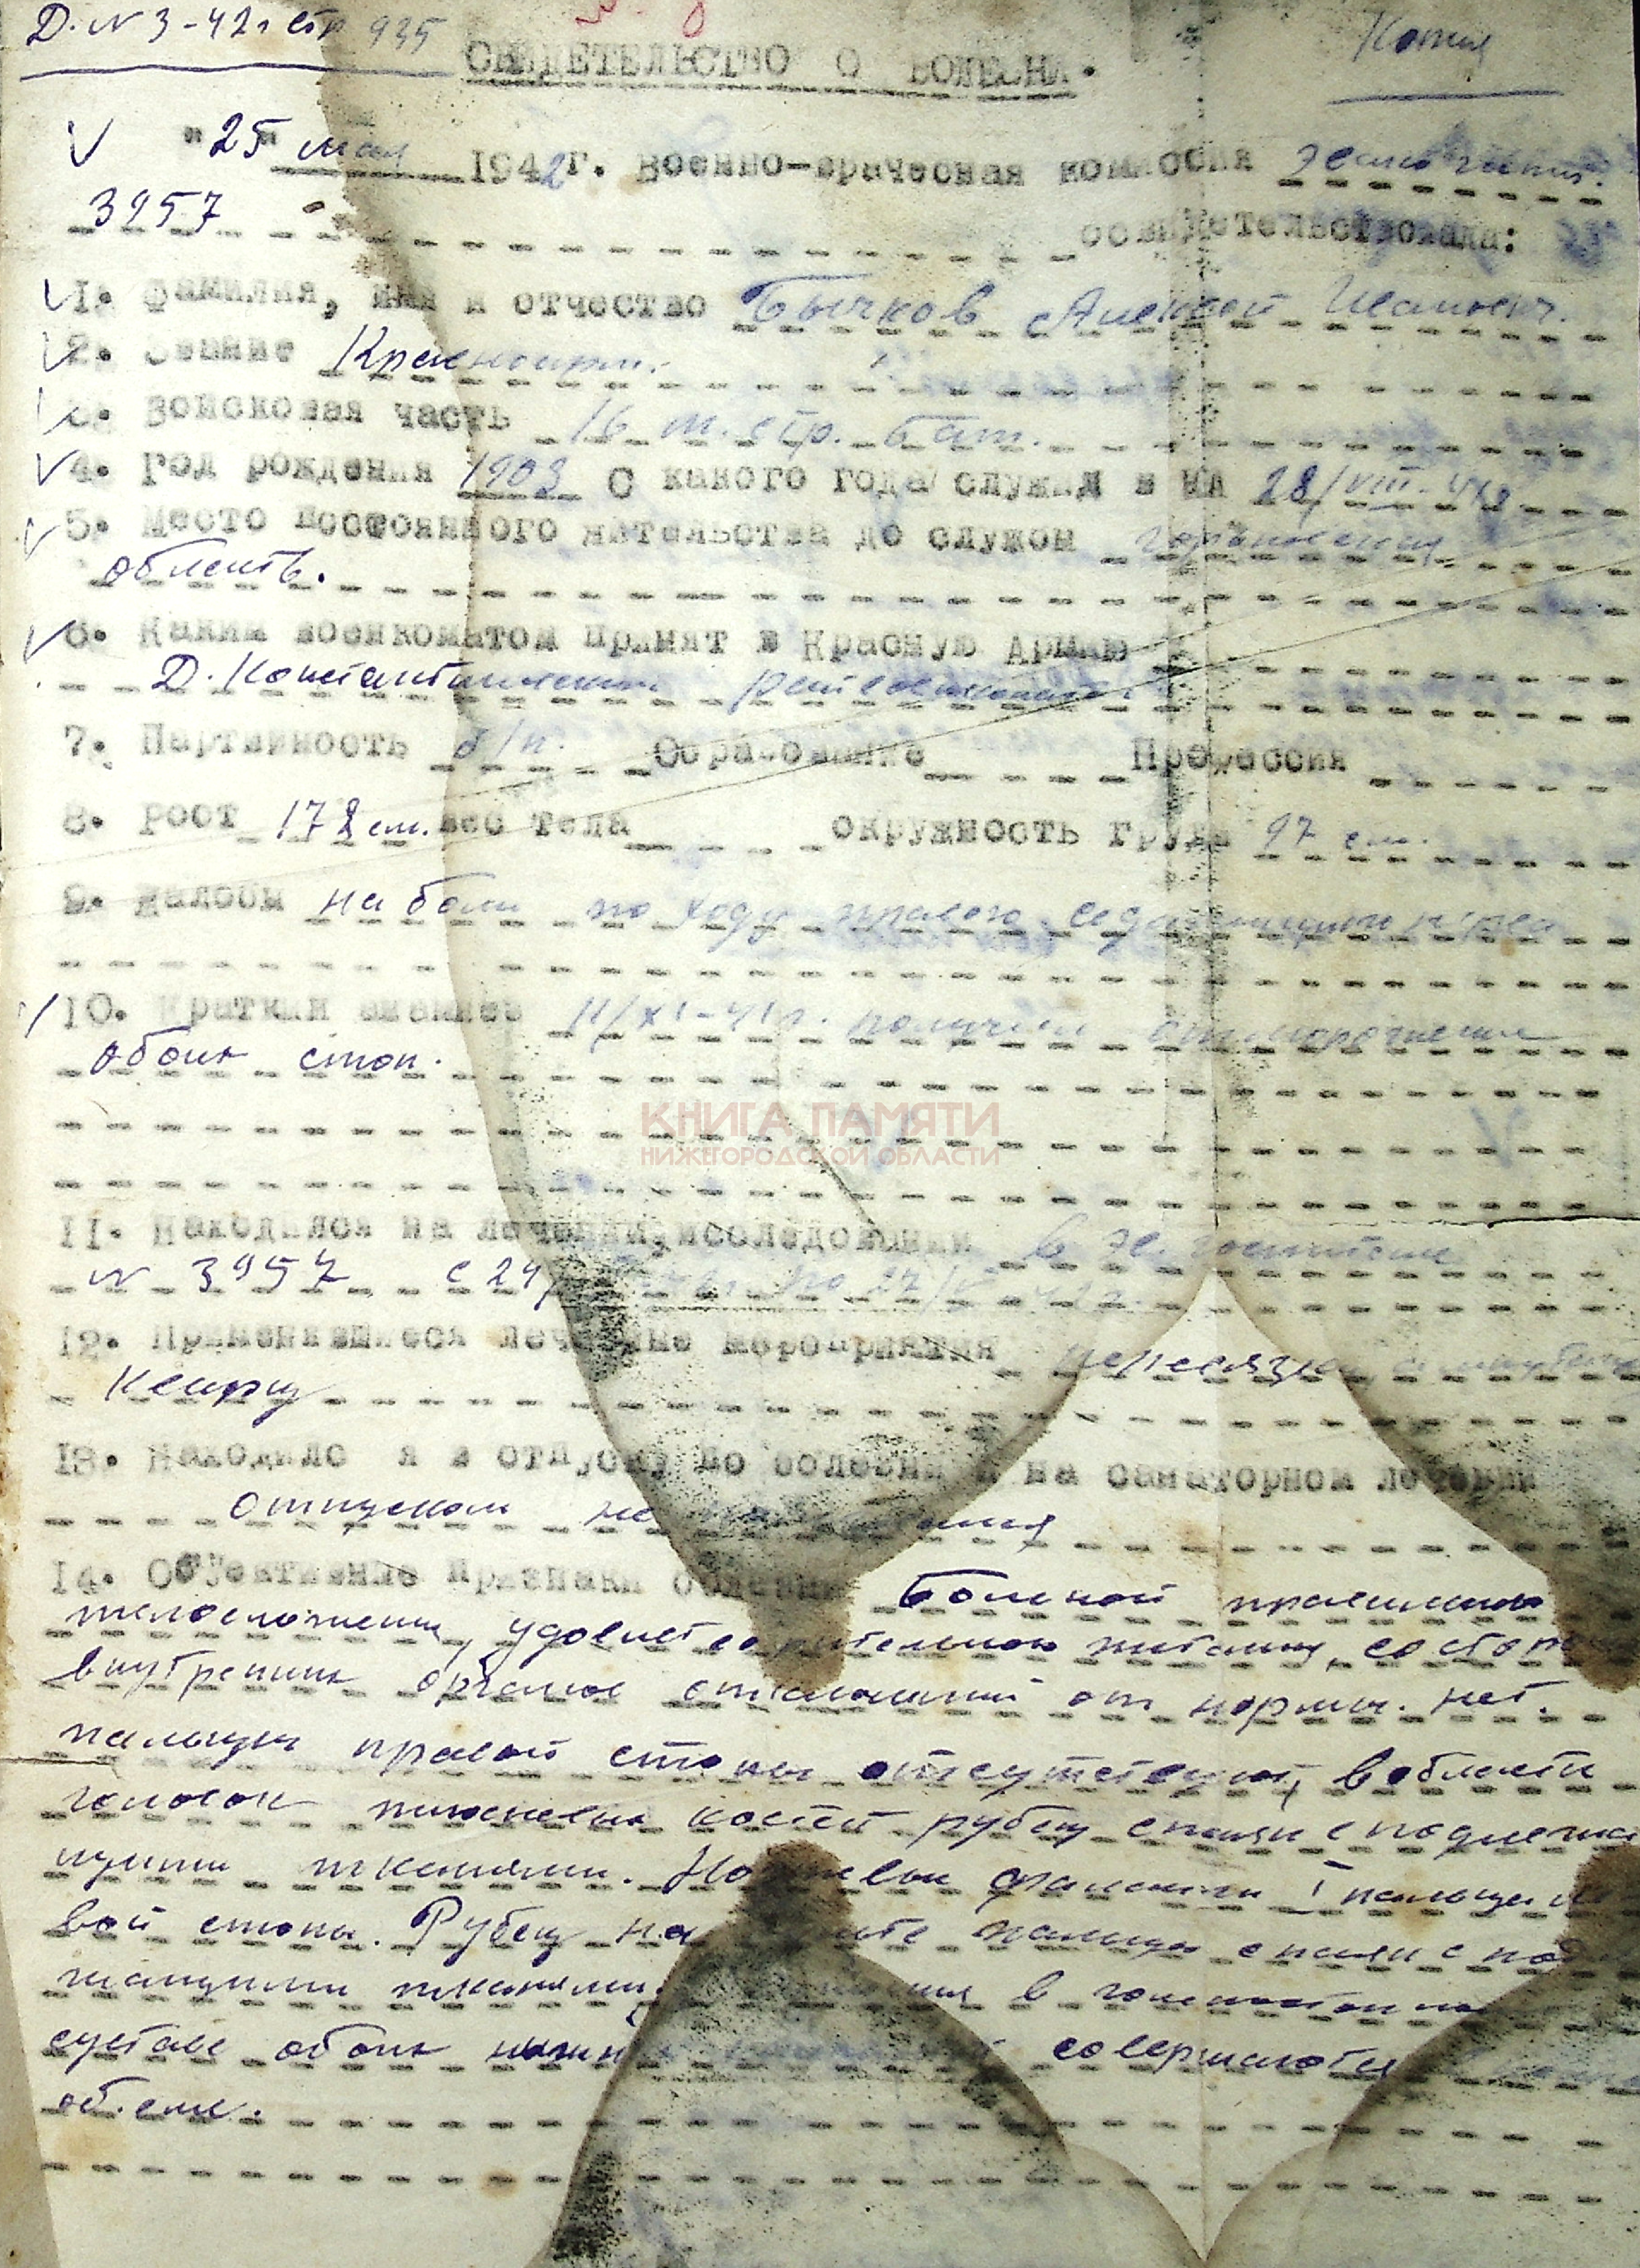 Д. N 3-42г стр 935
Копия
СВИДЕТЕЛЬСТВО О БОЛЕЗНИ.
"25" мая 1942г. Военно-врачесная комиссия эвакогоспит.
3957 освидетельствовала:
1. Фамилия, имя и отчество Бычков Алексей Иванович.
2. Звание Красноарм.
3. Войсковая часть 16 стр. бат.
4. Год рождения 1903 С какого года служил в КА 28/VIII-41г
5. Место постоянного жительства до службы Горьковская
область.
6. Каким военкоматом принят в Красную Армию
Д. Константиновским райвоенкоматом
7. Партийность б/п. Образование Профессия
8. Рост 172 см. вес тела окружность груди 97 см.
9. Жалобы на боли по ходу правого седалищного нерва
10. Краткий анамнез 11/XI-41г. получил отморожение
обоих стоп.
КНИГА ПАМЯТИ
НИЖЕГОРОДСКОЙ ОБЛАСТИ
11. Находился на лечении, исследовании в эв. госпитале
N 3957 с 24/ по 27/
12. Применявшиеся лечебные мероприятия перевязки
Кварц
13. Находился в отпуску по болезни и на санаторном лечении
отпуском не
14. Объективные признаки болезни Больной правильного
телосложения, удовлетворительного питания, со стороны
внутренних органов отклонений от нормы нет.
пальцы правой стопы отсутствуют, в области
головок плюсневых костей рубец спаян с подлежа
щими тканями. фаланги I пальца ле
вой стопы. Рубец на пальца спаян с под
жащими тканями, в голеностопном
суставе обоих нижн совершаются
об'еме.